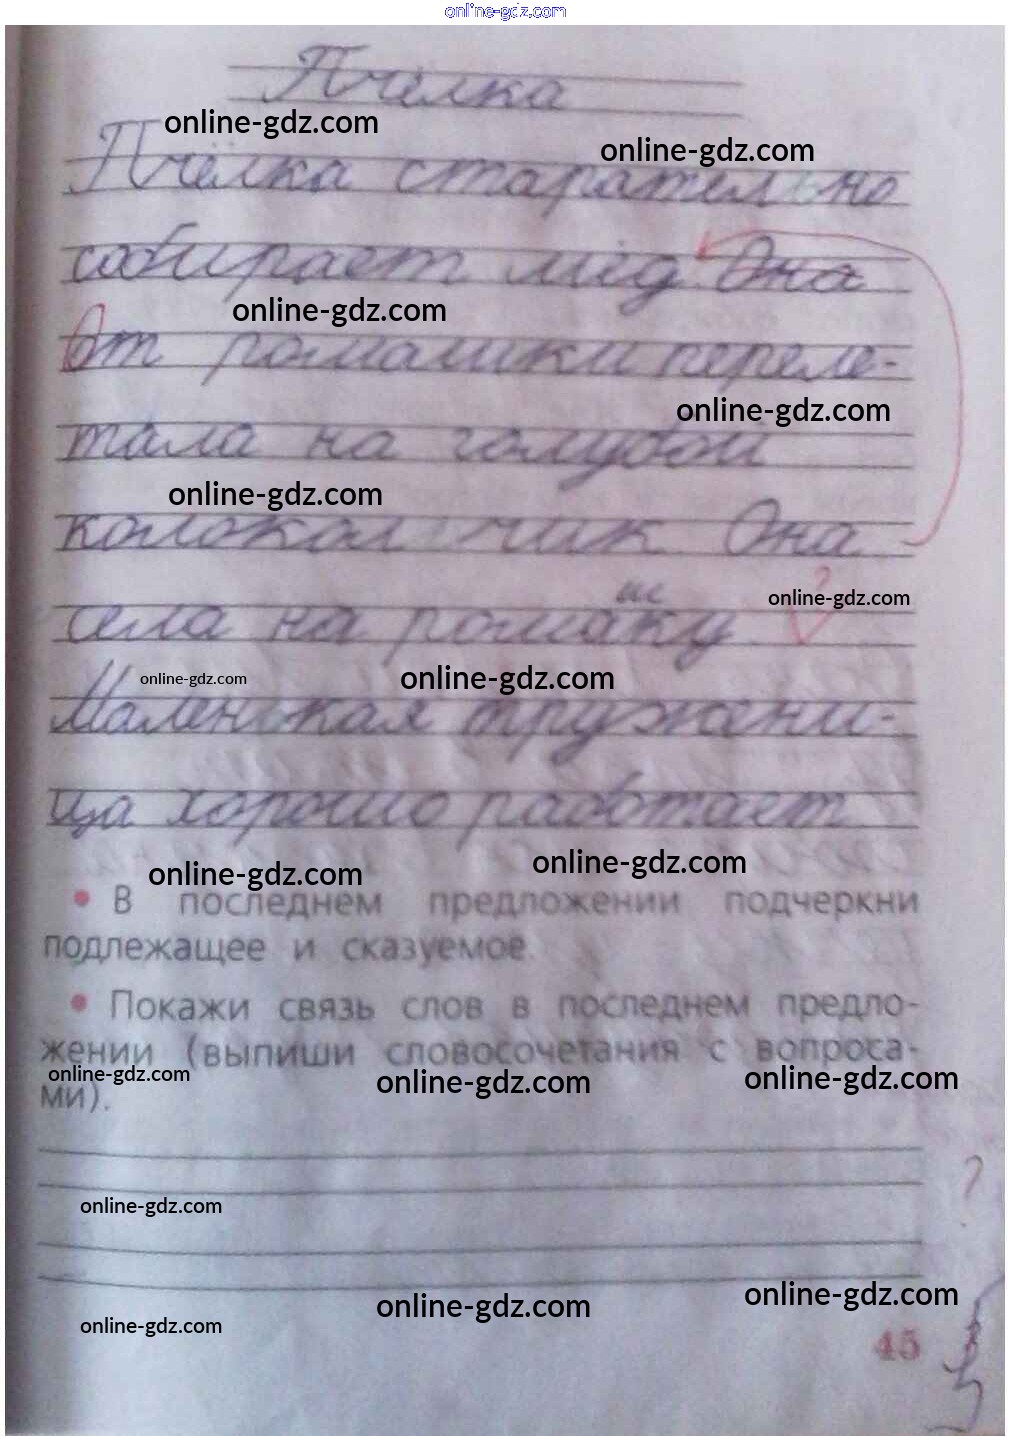 online-gdz.com
Пчёлка
online-gdz.com
online-gdz.com
Пчёлка старательно
собирает мёд. Она
online-gdz.com
От ромашки переле-
online-gdz.com
тала на голубой
online-gdz.com
колокольчик Она
online-gdz.com
ш
села на ромаку
online-gdz.com
online-gdz.com
Маленькая тружени-
ца хорошо работает
online-gdz.com
online-gdz.com
• В последнем предложении подчеркни
подлежащее и сказуемое.
• Покажи связь слов в последнем предло-
жении (выпиши словосочетания с вопроса-
online-gdz.com
online-gdz.com
online-gdz.com
ми).
?
online-gdz.com
online-gdz.com
online-gdz.com
online-gdz.com
45